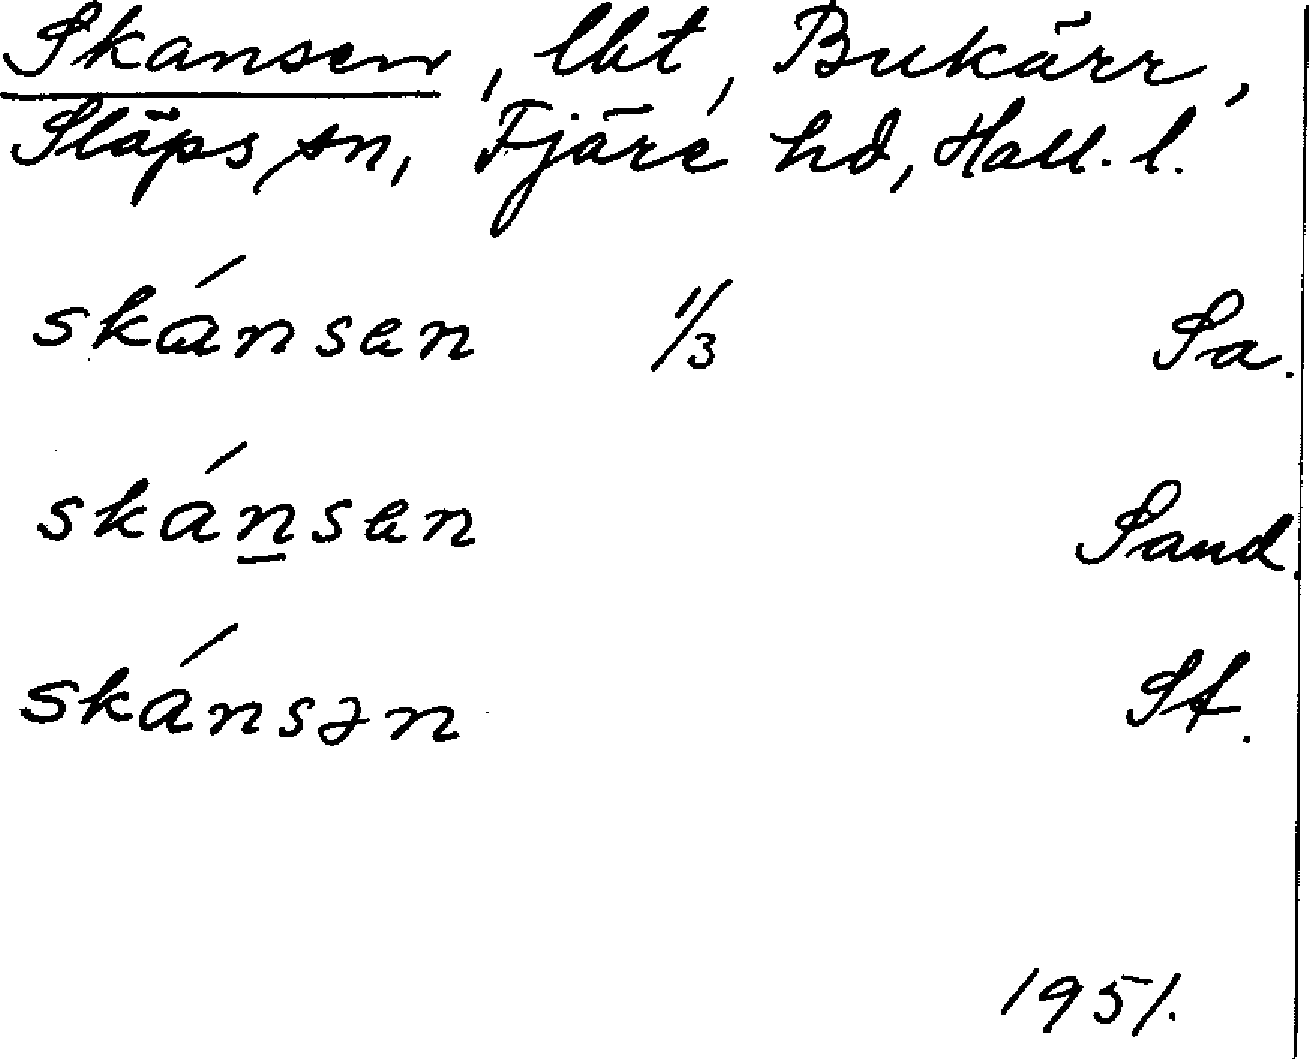 Skansen, lht, Bukärr,
Släps sn, Fjäre hd, Hall. l.
skánsen 1/3 Sa.
skánsen Sand.
skánsən St.
1951.